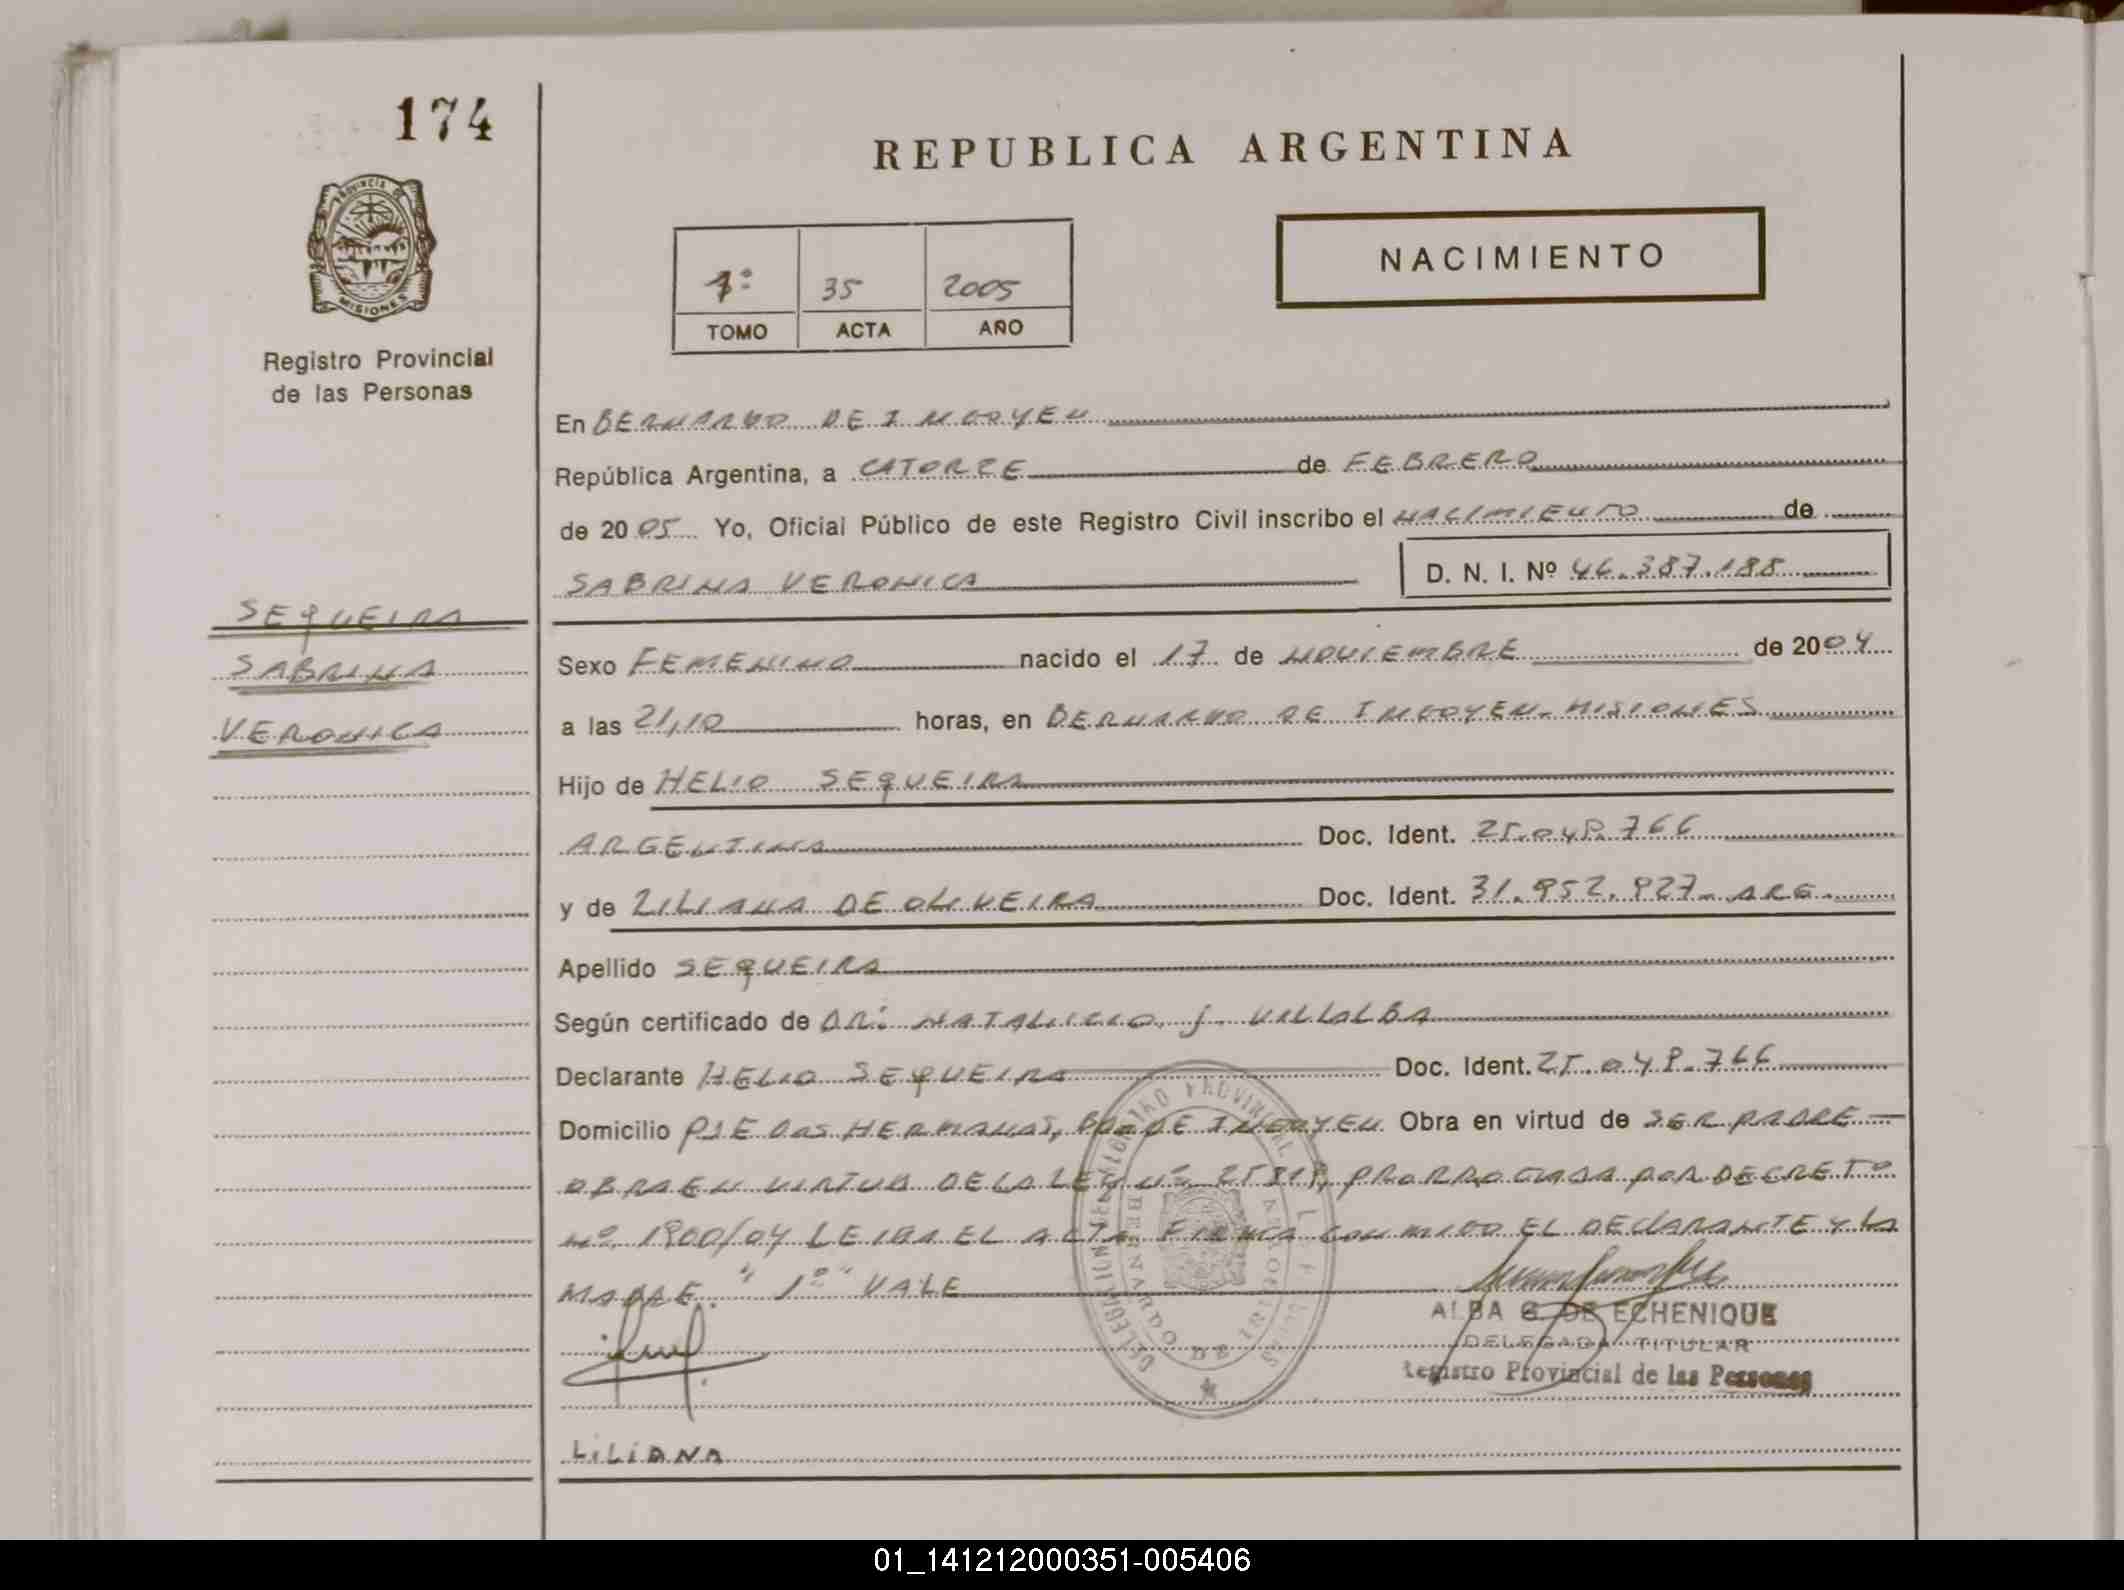 174
REPUBLICA ARGENTINA
PROVINCIA DE MISIONES
Registro Provincial
de las Personas
1º 35 2005
TOMO ACTA AÑO
NACIMIENTO
En BERNARDO DE IRIGOYEN
República Argentina, a CATORCE de FEBRERO
de 2005 Yo, Oficial Público de este Registro Civil inscribo el NACIMIENTO de
SABRINA VERONICA D. N. I. Nº 46.387.188
SEQUEIRA
SABRINA
VERONICA
Sexo FEMENINO nacido el 17 de NOVIEMBRE de 2004
a las 21,10 horas, en BERNARDO DE IRIGOYEN - MISIONES
Hijo de HELIO SEQUEIRA
ARGENTINA Doc. Ident. 25.048.766
y de LILIANA DE OLIVEIRA Doc. Ident. 31.952.927 - ARG.
Apellido SEQUEIRA
Según certificado de DR: NATALICIO J. VILLALBA
Declarante HELIO SEQUEIRA Doc. Ident. 25.048.766
Domicilio PJE DOS HERMANAS, BDO DE IRIGOYEN Obra en virtud de SER PADRE
OBRA EN VIRTUD DE LA LEY Nº 25819, PRORROGADA POR DECRETO
Nº 1900/04 LEIDA EL ACTA FIRMA CONMIGO EL DECLARANTE Y LA
MADRE. "1º" VALE
ALBA G. DE ECHENIQUE
DELEGADA TITULAR
Registro Provincial de las Personas
LILIANA
01_141212000351-005406